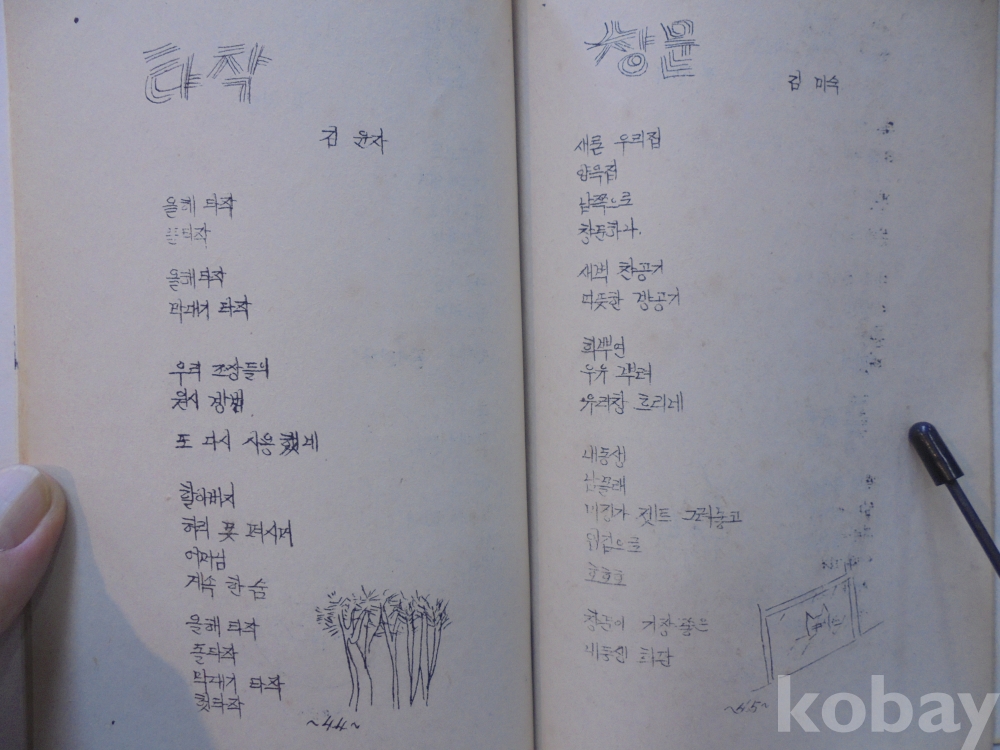 타작
김 윤자
올해 타작
올해 타작
막대기 타작
우리 조상들의
원시 방법
또 다시 사용했네
할아버지
허리 못 펴시며
어머님
계속 한숨
올해 타작
막대기 타작
~44~
창문
김 미숙
새론 우리집
양옥집
남쪽으로
창문하나.
새벽 찬공기
따뜻한 강공기
희뿌연
우유 뿌려
유리창 흐리네
내동생
남몰래
비행기 젯트 그려놓고
입김으로
호호호
창문이 가장 좋은
내동생 화판
~45~
kobay